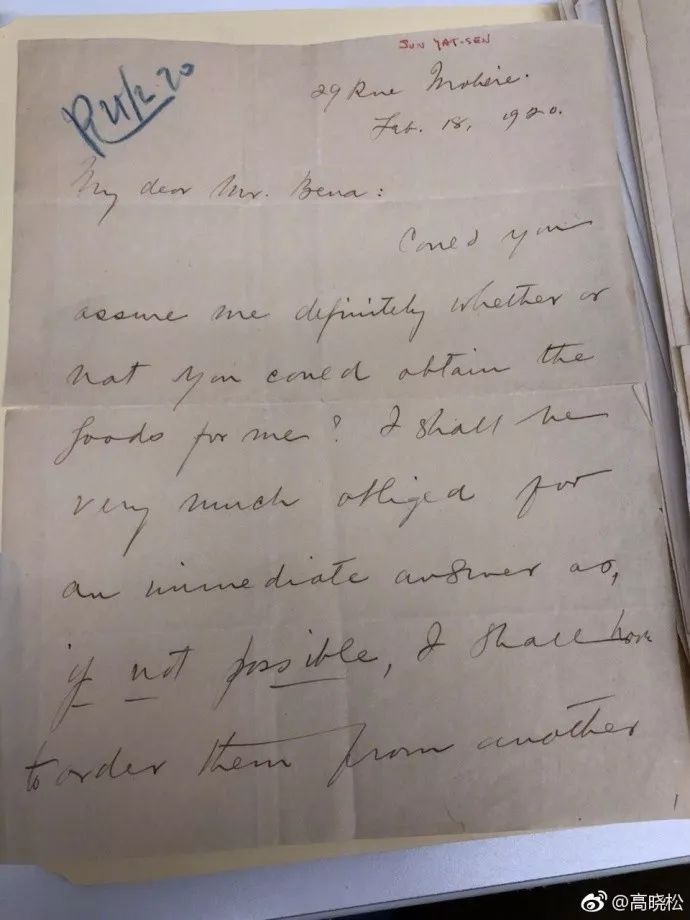 SUN YAT-SEN
R 21/2 20
29 Rue Molière.
Feb. 18, 1920.
My dear Mr. Bena:
Could you
assure me definitely whether or
not you could obtain the
goods for me? I shall be
very much obliged for
an immediate answer as,
if not possible, I shall have
to order them from another
1
@高晓松